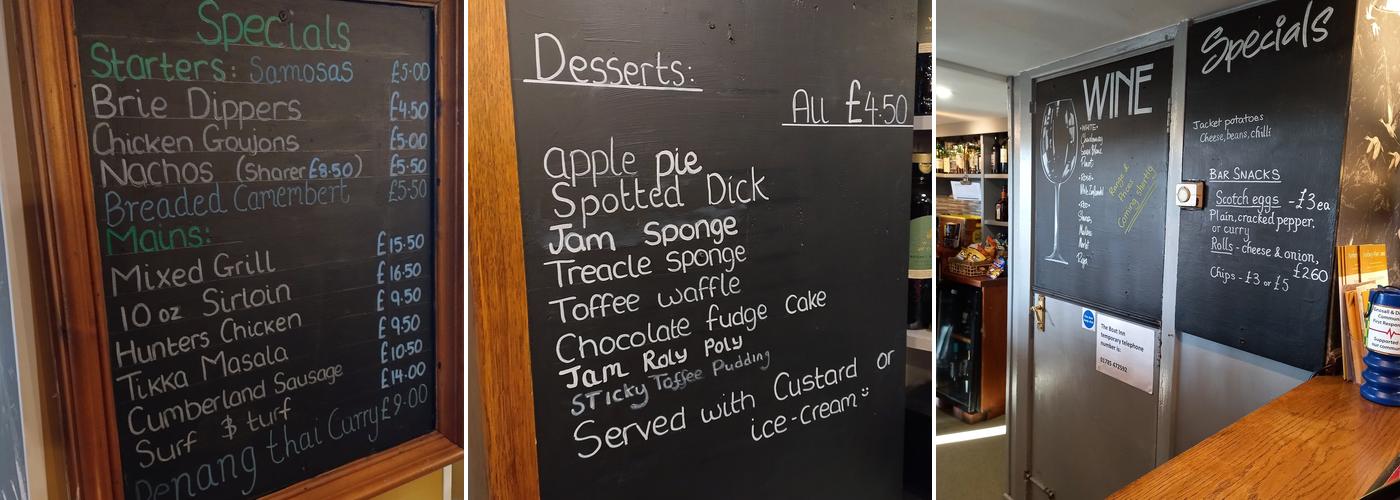 Specials
Starters: Samosas £5.00
Brie Dippers £4.50
Chicken Goujons £5.00
Nachos (Sharer £8.50) £5.50
Breaded Camembert £5.50
Mains:
Mixed Grill £15.50
10 oz Sirloin £16.50
Hunters Chicken £9.50
Tikka Masala £9.50
Cumberland Sausage £10.50
Surf $ turf £14.00
Penang thai Curry £9.00
Desserts:
All £4.50
apple pie
Spotted Dick
Jam Sponge
Treacle sponge
Toffee waffle
Chocolate fudge cake
Jam Roly Poly
Sticky Toffee Pudding
Served with Custard or
ice-cream
WINE
•WHITE•
Chardonnay
Sauv Blanc
Pinot
•Rosé•
White Zinfandel
•RED•
Shiraz
Malbec
Merlot
Rioja
Range &
Prices
Coming shortly
The Boat Inn
temporary telephone
number is:
01785 472592
Specials
Jacket potatoes
Cheese, beans, chilli
BAR SNACKS
Scotch eggs - £3 ea
Plain, cracked pepper,
or curry
Rolls - cheese & onion,
£2.60
Chips - £3 or £5